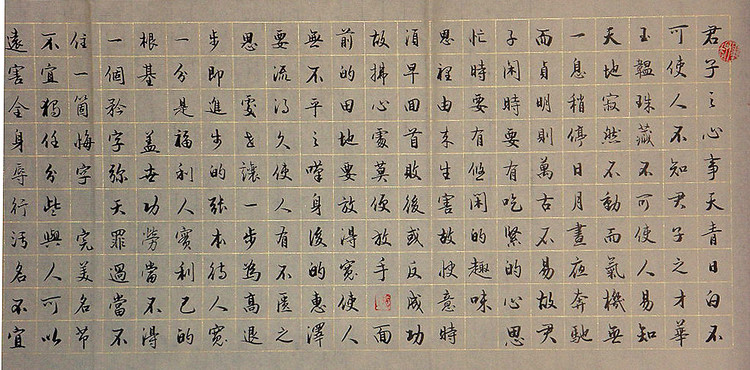 君子之心事天青日白不
可使人不知君子之才華
玉韞珠藏不可使人易知
天地寂然不動而氣機無
一息稍停日月晝夜奔馳
而貞明則萬古不易故君
子閑時要有吃緊的心思
忙時要有悠閑的趣味
恩裡由來生害故快意時
須早回首敗後或反成功
故拂心處莫便放手 面
前的田地要放得寬使人
無不平之嘆身後的惠澤
要流得久使人有不匱之
思 處世讓一步為高退
步即進步的張本待人寬
一分是福利人實利己的
根基 蓋世功勞當不得
一個矜字彌天罪過當不
住一箇悔字 完美名節
不宜獨任分些與人可以
遠害全身辱行污名不宜